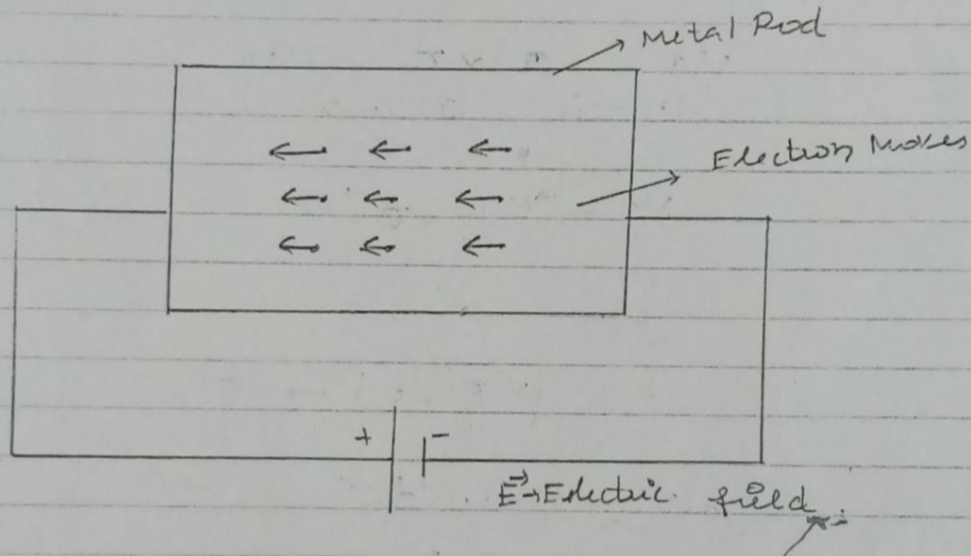 Metal Rod
Electron Moves
+ -
E→Electric field.